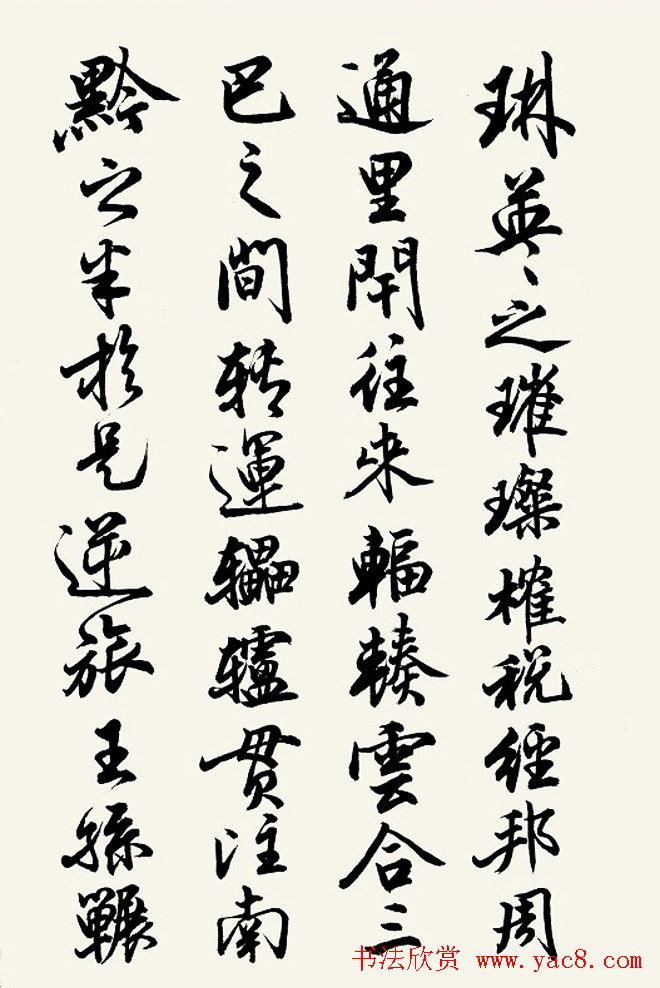 琳英々之璀璨榷税經邦周
通里閈往來輻輳雲合三
巴之間轉運轠轤貫注南
黔之半於是逆旅王孫囅
书法欣赏 www.yac8.com